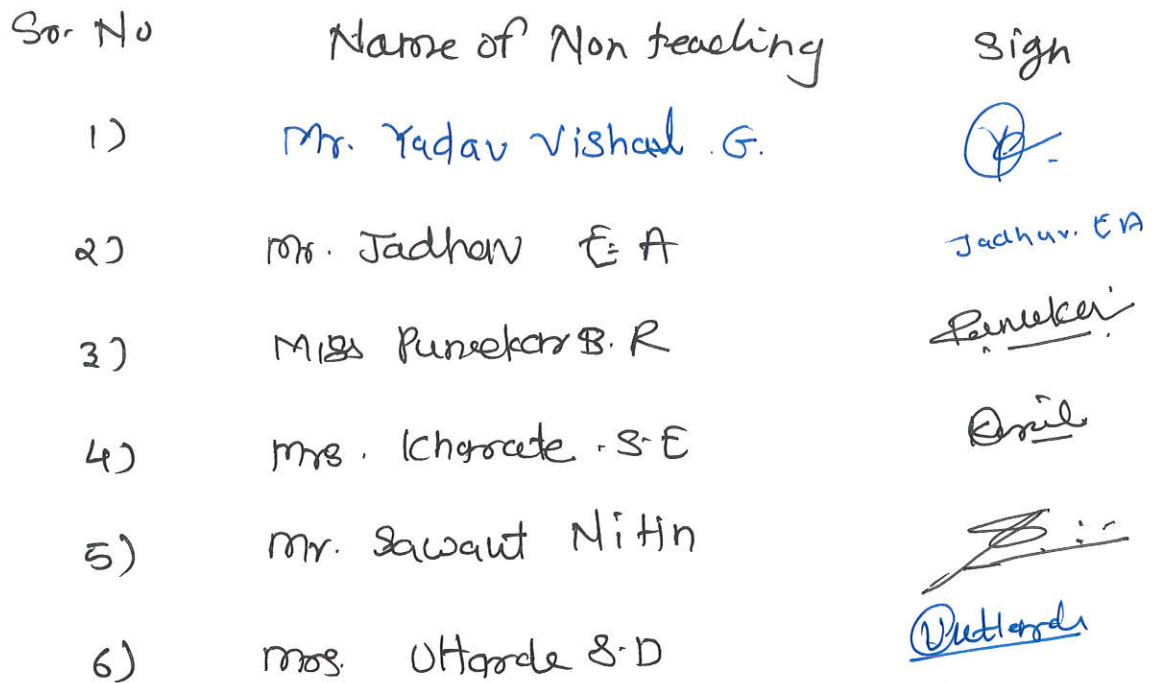 Sr. No Name of Non teaching Sign
1) Mr. Yadav Vishal .G.
2) Mr. Jadhav E. A Jadhav. E A
3) Miss Punekar B. R Punekar
4) Mrs. Kharate .S.E
5) Mr. Sawant Nitin
6) Mrs. Uttarde S.D